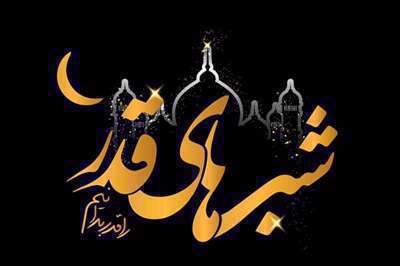 شب های قدر
را قدر بدانیم